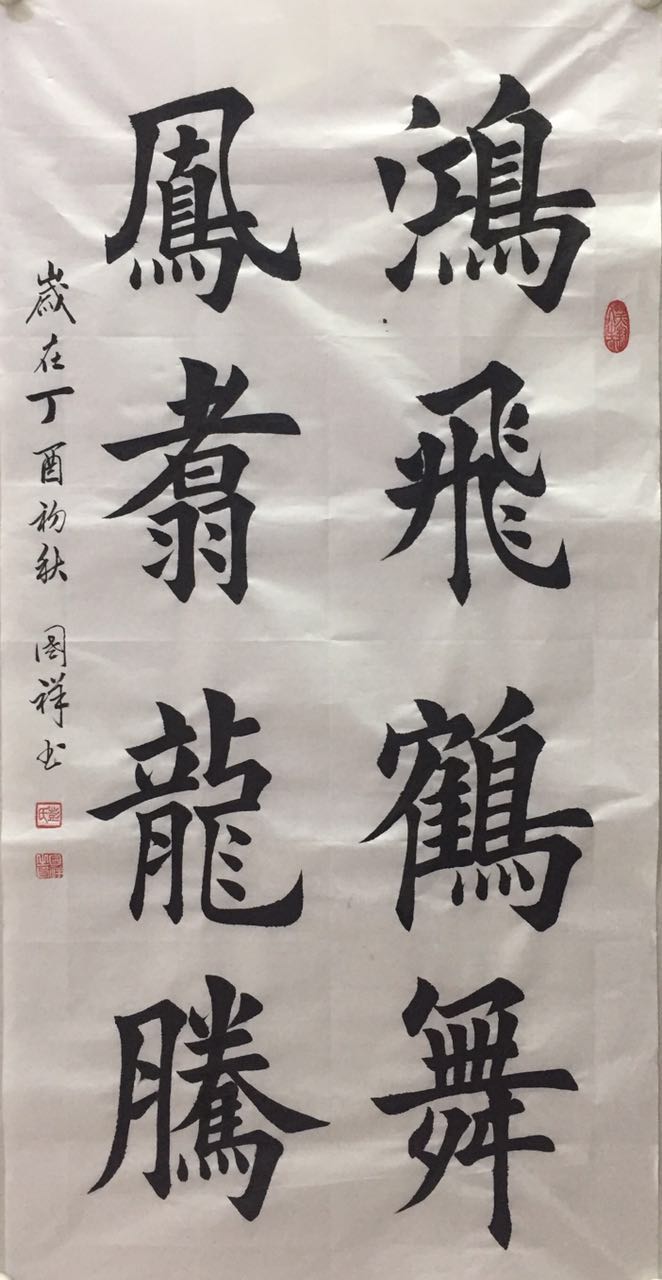 鴻飛鶴舞
鳳翥龍騰
歲在丁酉初秋 國祥书